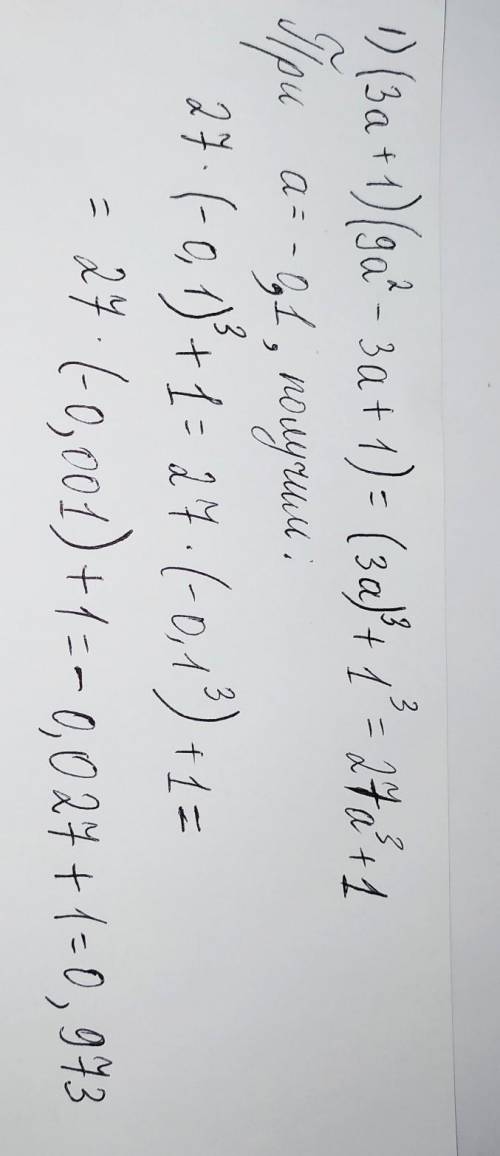 1) (3a + 1)(9a² - 3a + 1) = (3a)³ + 1³ = 27a³ + 1
При a = -0,1, получим:
27 · (-0,1)³ + 1 = 27 · (-0,1³) + 1 =
= 27 · (-0,001) + 1 = -0,027 + 1 = 0,973